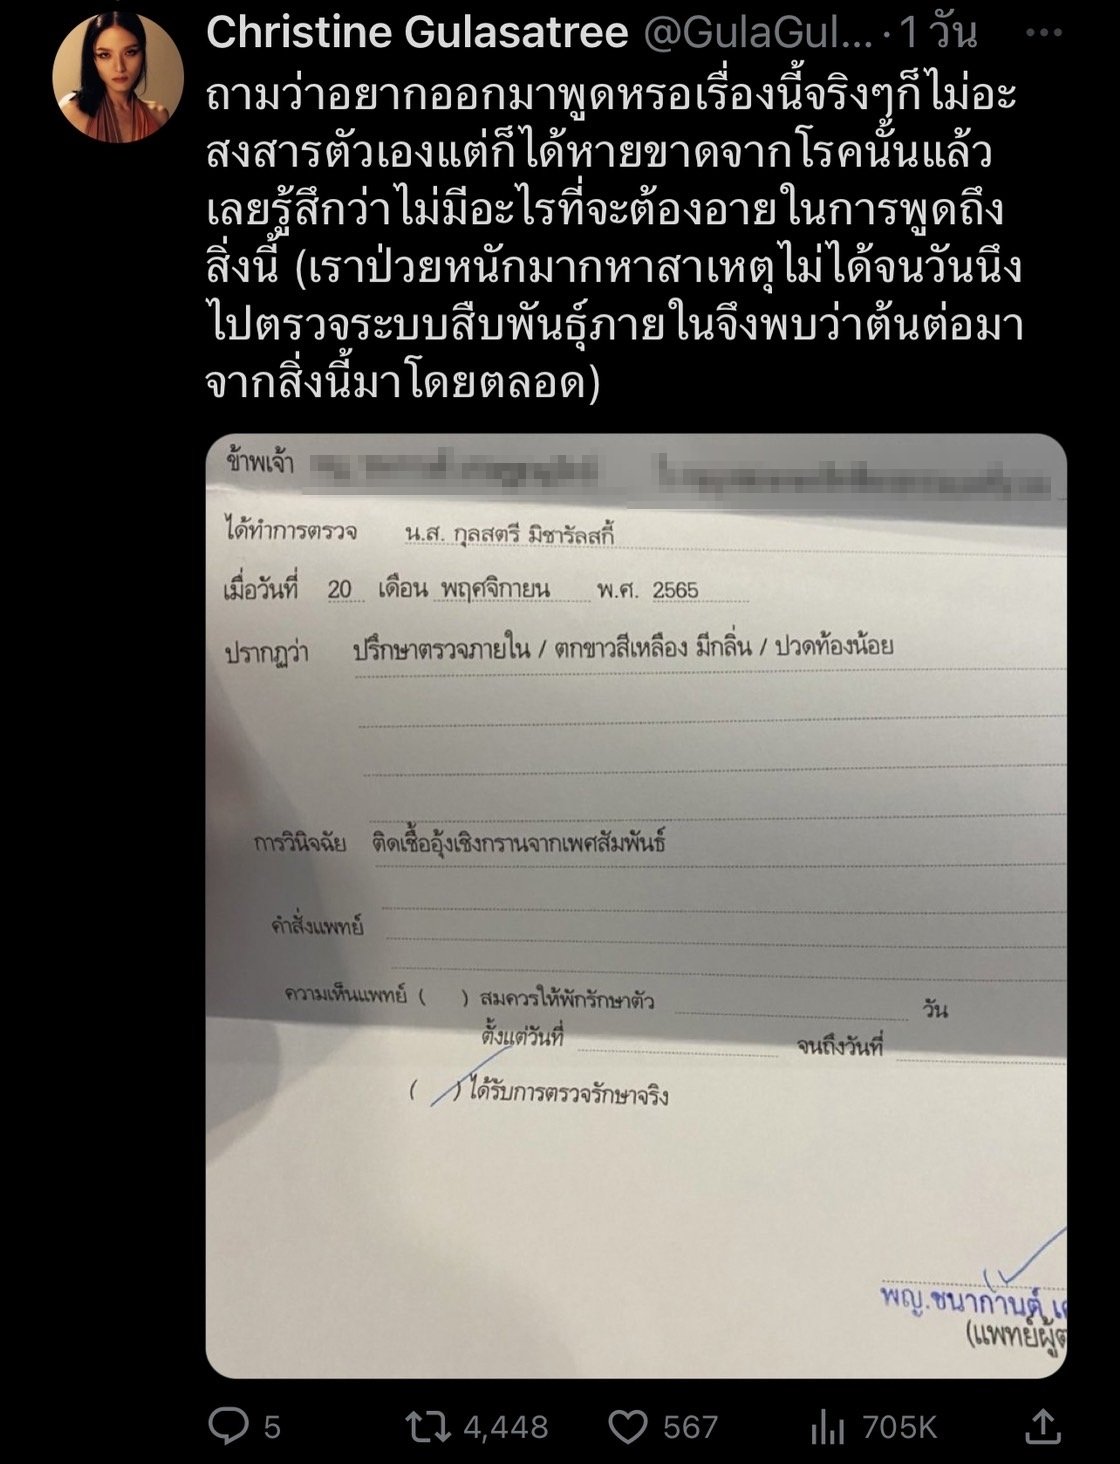 Christine Gulasatree @GulaGul... · 1 วัน
ถามว่าอยากออกมาพูดหรอเรื่องนี้จริงๆก็ไม่อะ
สงสารตัวเองแต่ก็ได้หายขาดจากโรคนั้นแล้ว
เลยรู้สึกว่าไม่มีอะไรที่จะต้องอายในการพูดถึง
สิ่งนี้ (เราป่วยหนักมากหาสาเหตุไม่ได้จนวันนึง
ไปตรวจระบบสืบพันธุ์ภายในจึงพบว่าต้นต่อมา
จากสิ่งนี้มาโดยตลอด)
ข้าพเจ้า
ได้ทำการตรวจ น.ส. กุลสตรี มิชารัลสกี้
เมื่อวันที่ 20 เดือน พฤศจิกายน พ.ศ. 2565
ปรากฏว่า ปรึกษาตรวจภายใน / ตกขาวสีเหลือง มีกลิ่น / ปวดท้องน้อย
การวินิจฉัย ติดเชื้ออุ้งเชิงกรานจากเพศสัมพันธ์
คำสั่งแพทย์
ความเห็นแพทย์ ( ) สมควรให้พักรักษาตัว วัน
ตั้งแต่วันที่ จนถึงวันที่
( / ) ได้รับการตรวจรักษาจริง
พญ.ชนากานต์
(แพทย์ผู้
5 4,448 567 705K